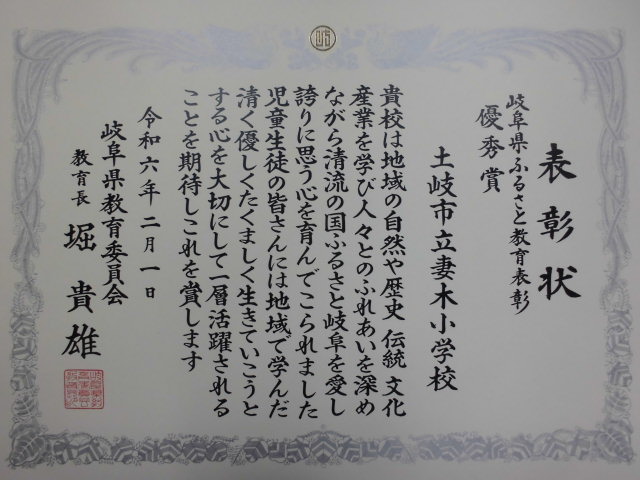 表彰状
岐阜県ふるさと教育表彰
優秀賞
土岐市立妻木小学校
貴校は地域の自然や歴史 伝統 文化
産業を学び人々とのふれあいを深め
ながら清流の国ふるさと岐阜を愛し
誇りに思う心を育んでこられました
児童生徒の皆さんには地域で学んだ
清く優しくたくましく生きていこうと
する心を大切にして一層活躍される
ことを期待しこれを賞します
令和六年 二月一日
岐阜県教育委員会
教育長 堀 貴雄